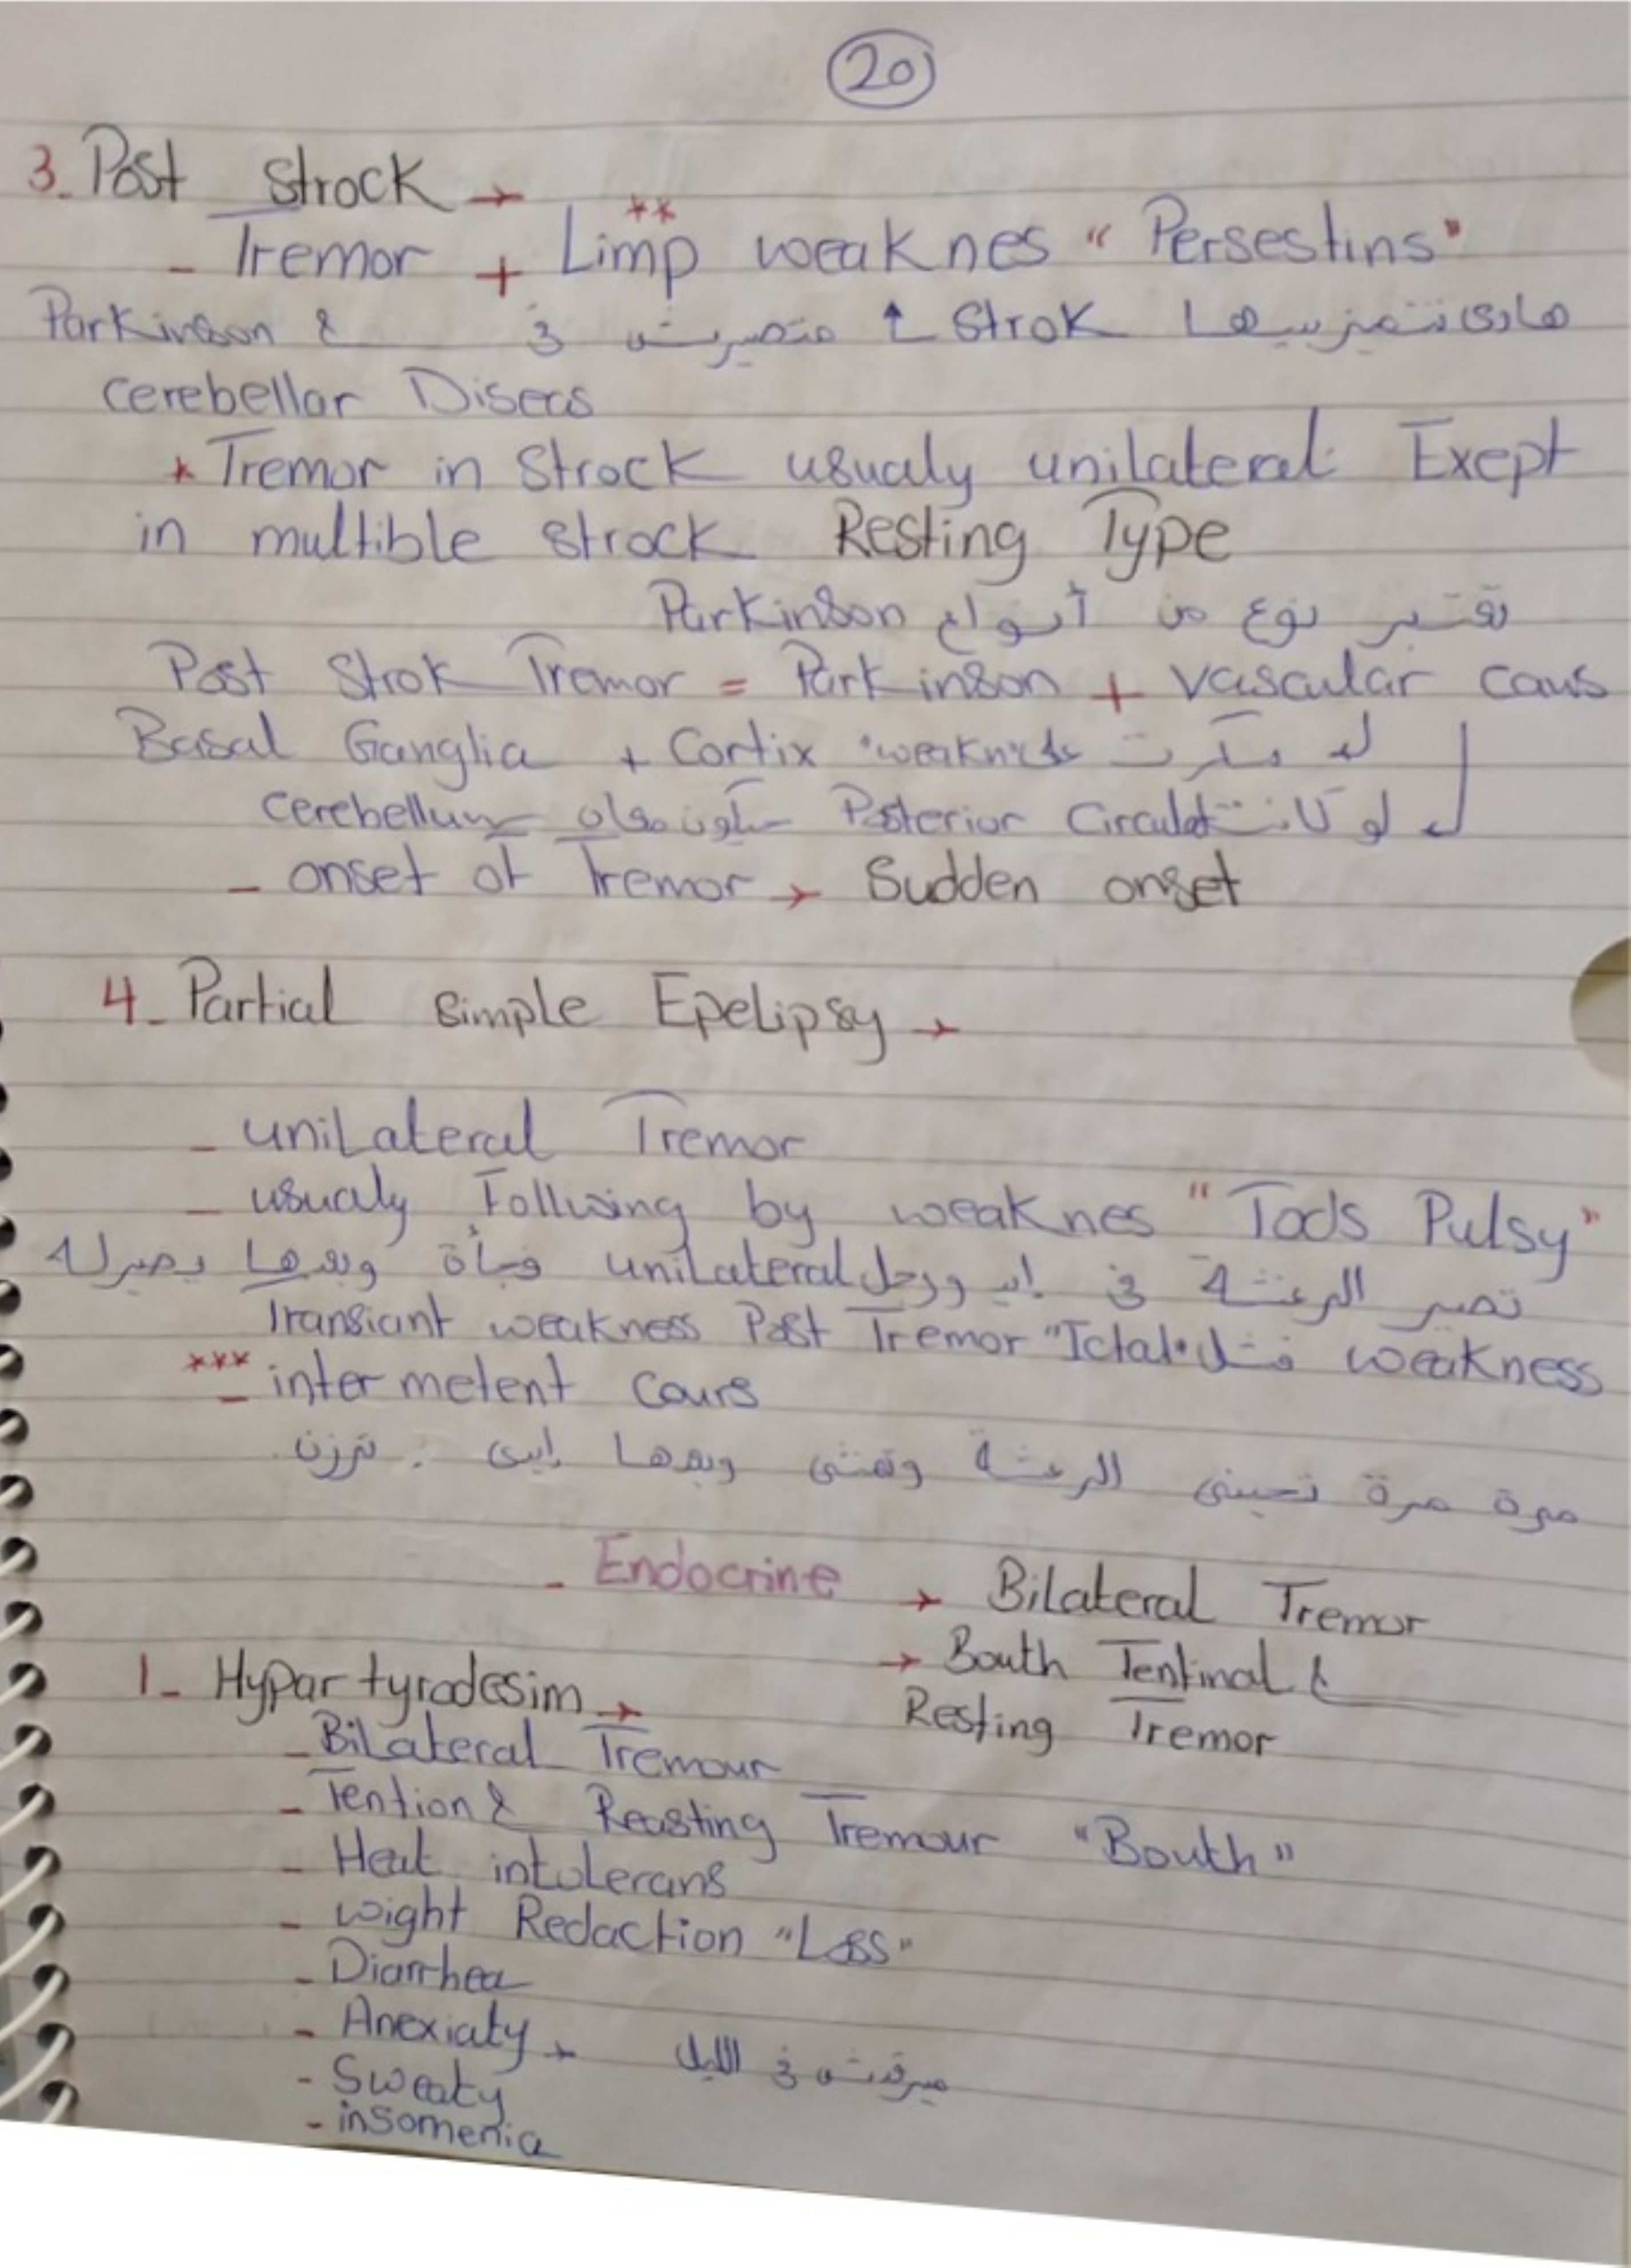 20
3- Post Strock →
- Tremor + Limp weaknes " Persestins "
هادي نتميز بيها Strok ↑ متصيرش في Parkinson &
cerebellar Diseas
* Tremor in Strock usualy unilateral Exept
in multible strock Resting Type
تعتبر نوع من أنواع Parkinson
Post Strok Tremor = Parkinson + vascular caus
Basal Ganglia + Cortix
لو كانت Posterior Circulat سيكون معاه cerebellum
- onset of Tremor → Sudden onset
4- Partial simple Epelipsy →
- uniLateral Tremor
- usualy Follwing by weaknes " Tods Pulsy "
تصير الرعشة في ايد ورجل uniLateral فجأة وبعدها يصيرله
Transiant weakness Post Tremor "Ictal" فشل weakness
*** - inter metent Cours
مرة مرة تجيني الرعشة وتمشي وبعدها إيدي ترزن
- Endocrine → BiLateral Tremor
→ Bouth Tentinal &
Resting Tremor
1- Hypar tyrodesim →
- BiLateral Tremour
- Tention & Reasting Tremour "Bouth"
- Heat intolerans
- wight Redaction "Loss"
- Diarrhea
- Anexiaty → ميرقدش في الليل
- Sweaty
- insomenia